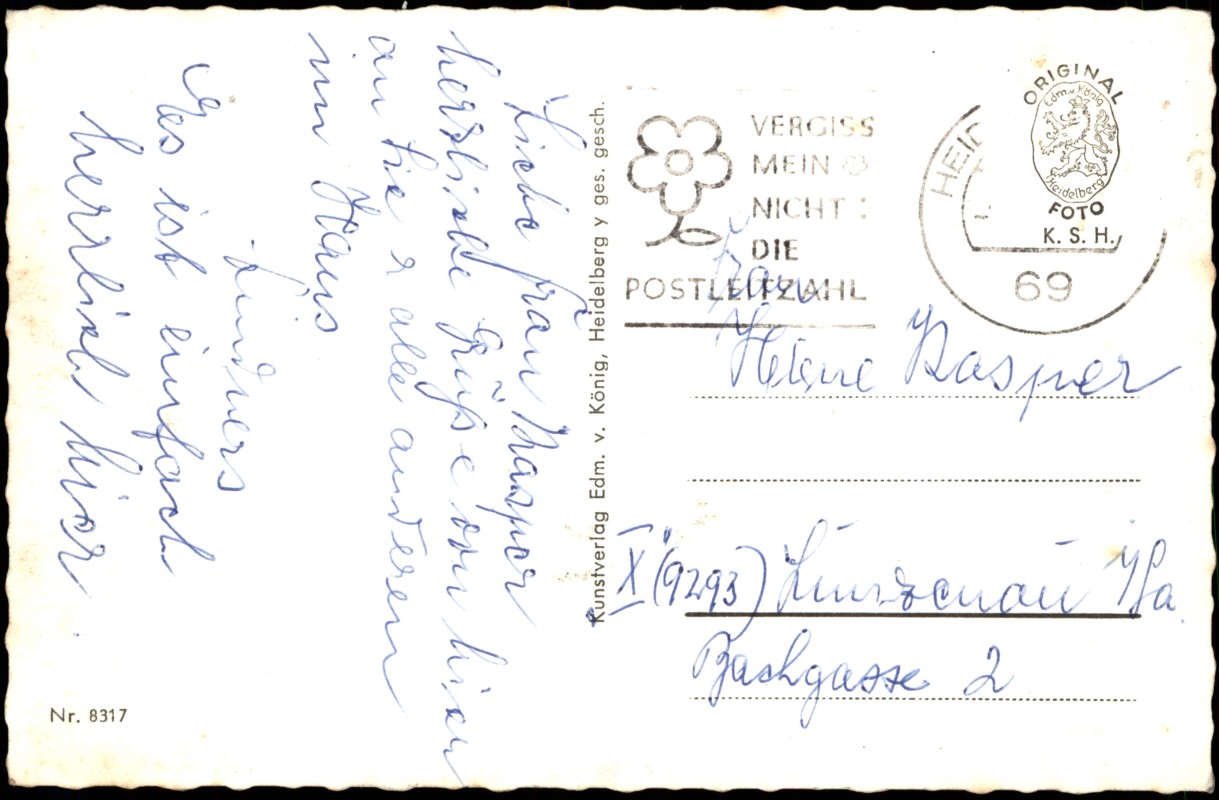 Liebe Frau Kasper
herzliche Grüße von hier
an Sie u alle anderen
im Haus
Es ist einfach
herrlich hier
Nr. 8317
Kunstverlag Edm. v. König, Heidelberg y ges. gesch.
VERGISS
MEIN
NICHT:
DIE
POSTLEITZAHL
HEID
69
ORIGINAL
Edm. v. König
Heidelberg
FOTO
K. S. H.
Frau
Helene Kasper
X (9293) Lunzenau /Sa
Bachgasse 2